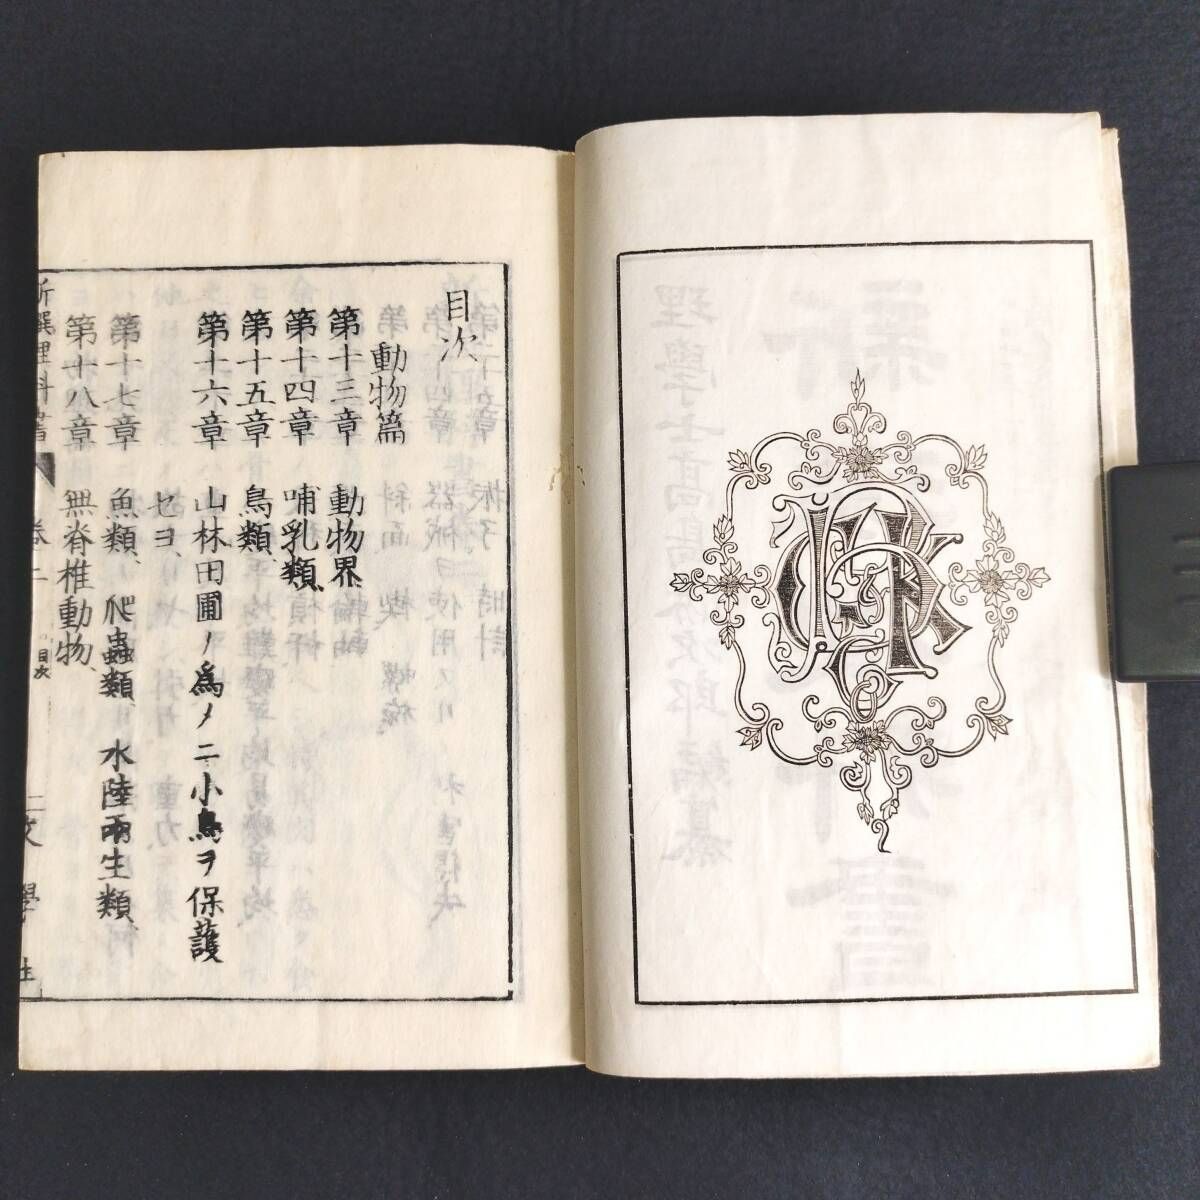 目次
動物篇
第十三章 動物界
第十四章 哺乳類、
第十五章 鳥類、
第十六章 山林田圃ノ爲メニ小鳥ヲ保護
セヨ、
第十七章 魚類、爬蟲類、水陸兩生類、
第十八章 無脊椎動物、
新撰理科書 卷二 目次 二 文學社